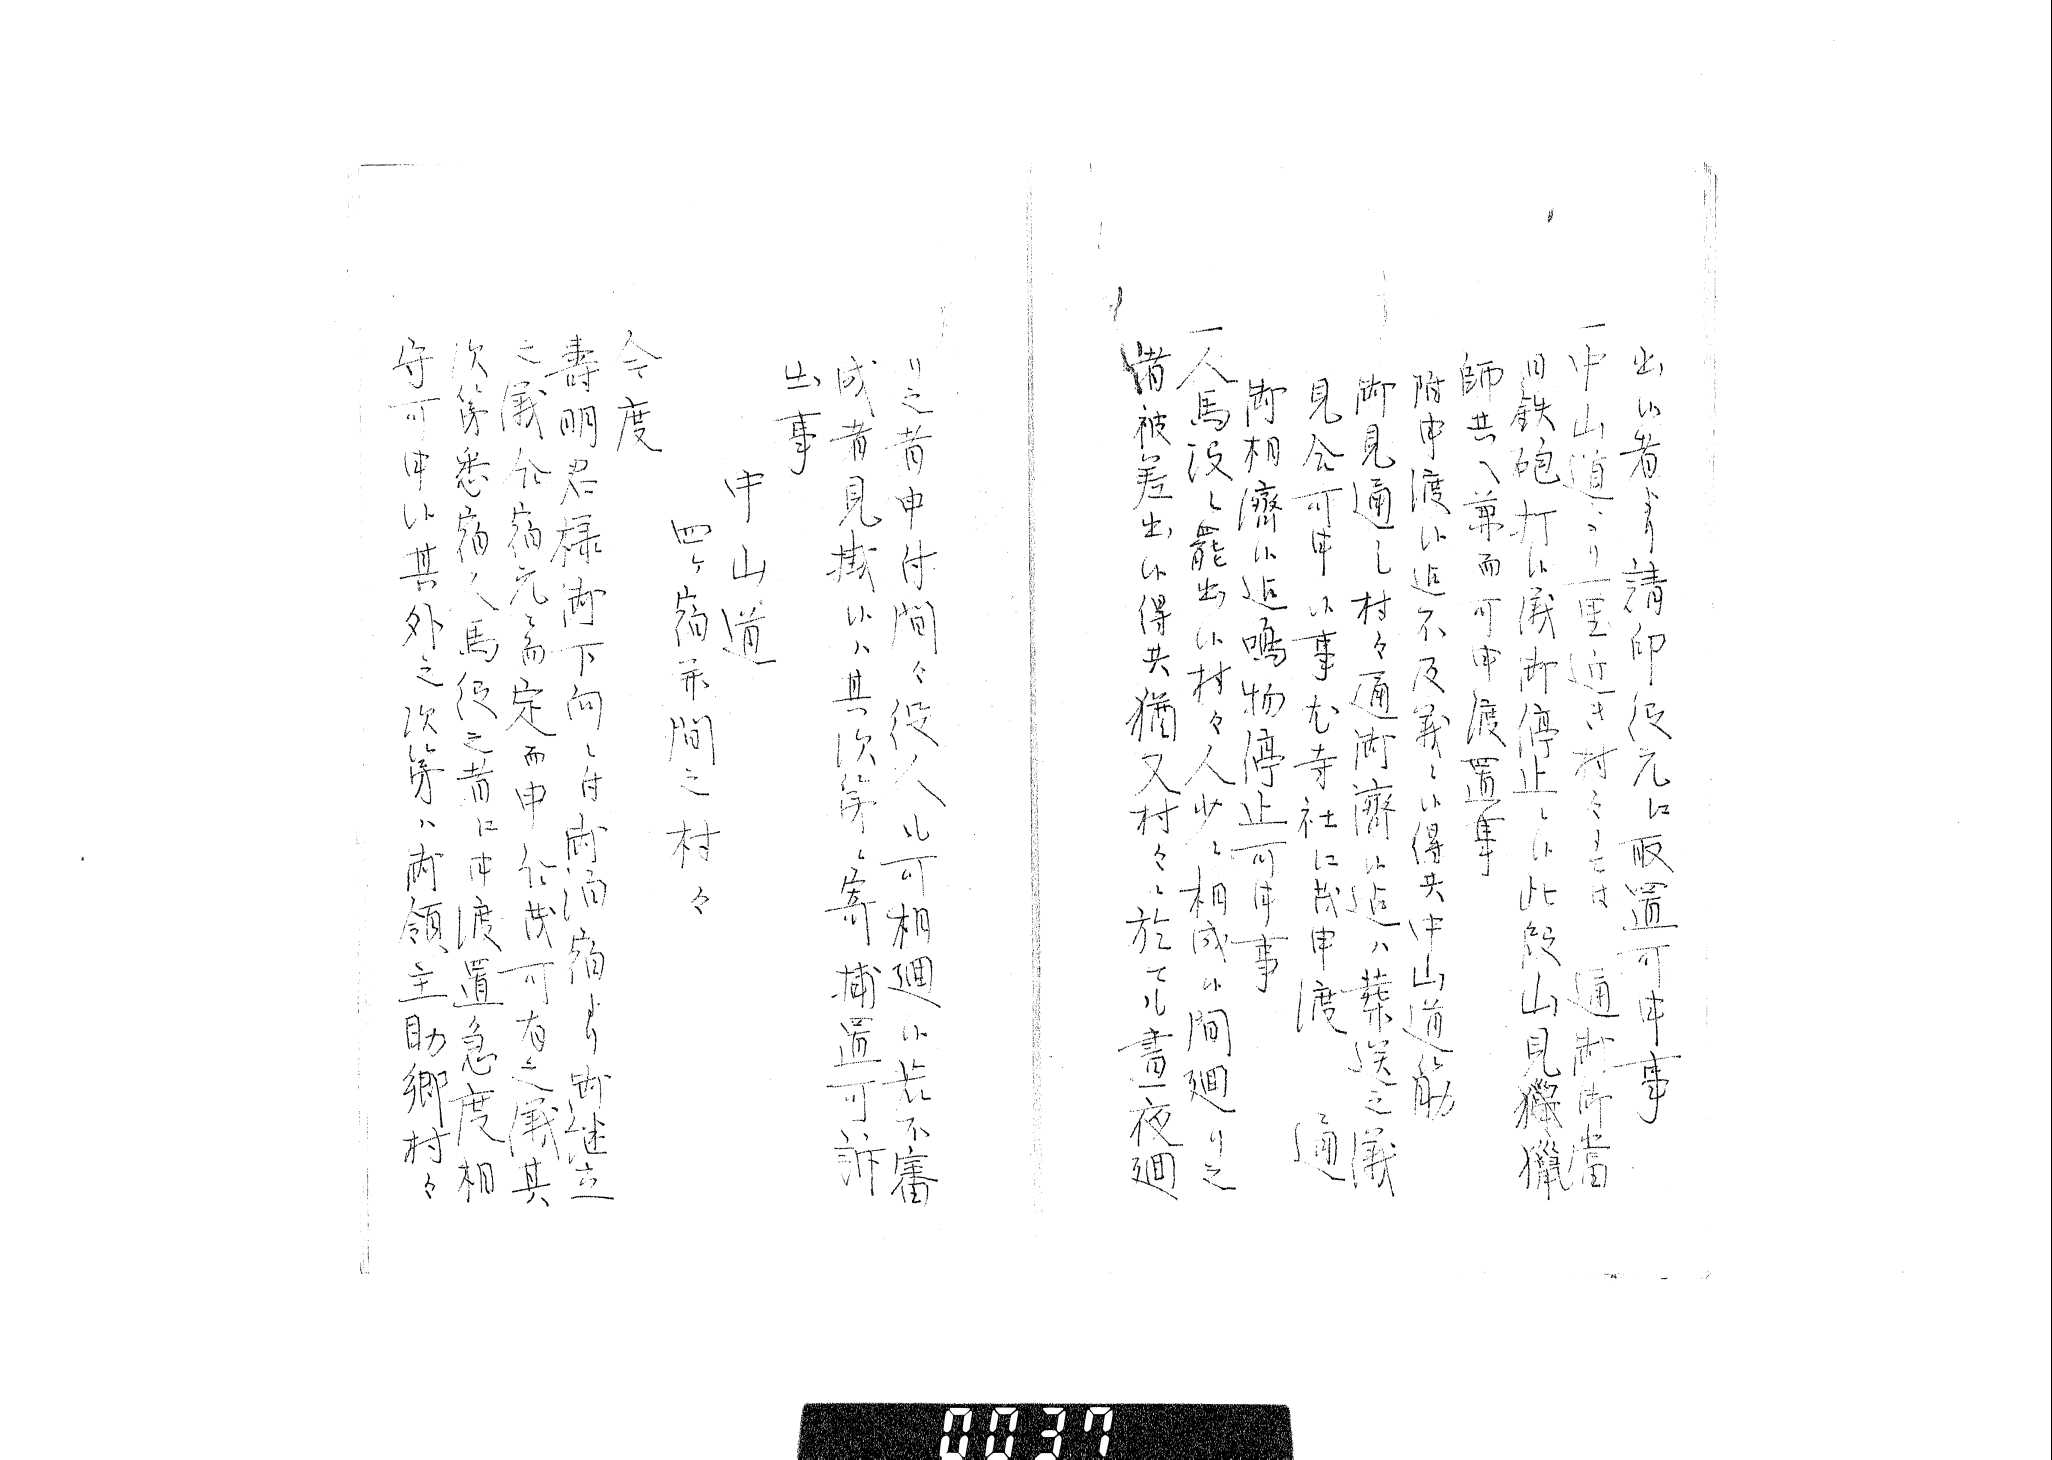 出候者ゟ請印役元ニ取置可申事
一中山道ゟリ一里近き村々にては　通御御當
日鉄砲打候儀御停止ニ候此段山見獵獵
師共へ兼而可申渡置事
附申渡候迄不及義ニ候得共中山道筋
御見通し村々通御濟候迄ハ葬送之儀
見合可申候事尤寺社ニ茂申渡　通
御相濟候迄鳴物停止可申事
一人馬役ニ罷出候村々人少ニ相成候間廻り之
者被差出候得共猶又村々ニ於ても晝夜廻
り之者申付間々役人も可相廻候若不審
成者見掛候ハ其次第ニ寄捕置可訴
出事
中山道
四ヶ宿并間之村々
今度
壽明君様御下向ニ付御泊宿ゟ御継立
之儀於宿元ニ而定而申付茂可有之儀其
次第悉宿人馬役之者ニ申渡置急度相
守可申候其外之次第ハ御領主助郷村々
0037